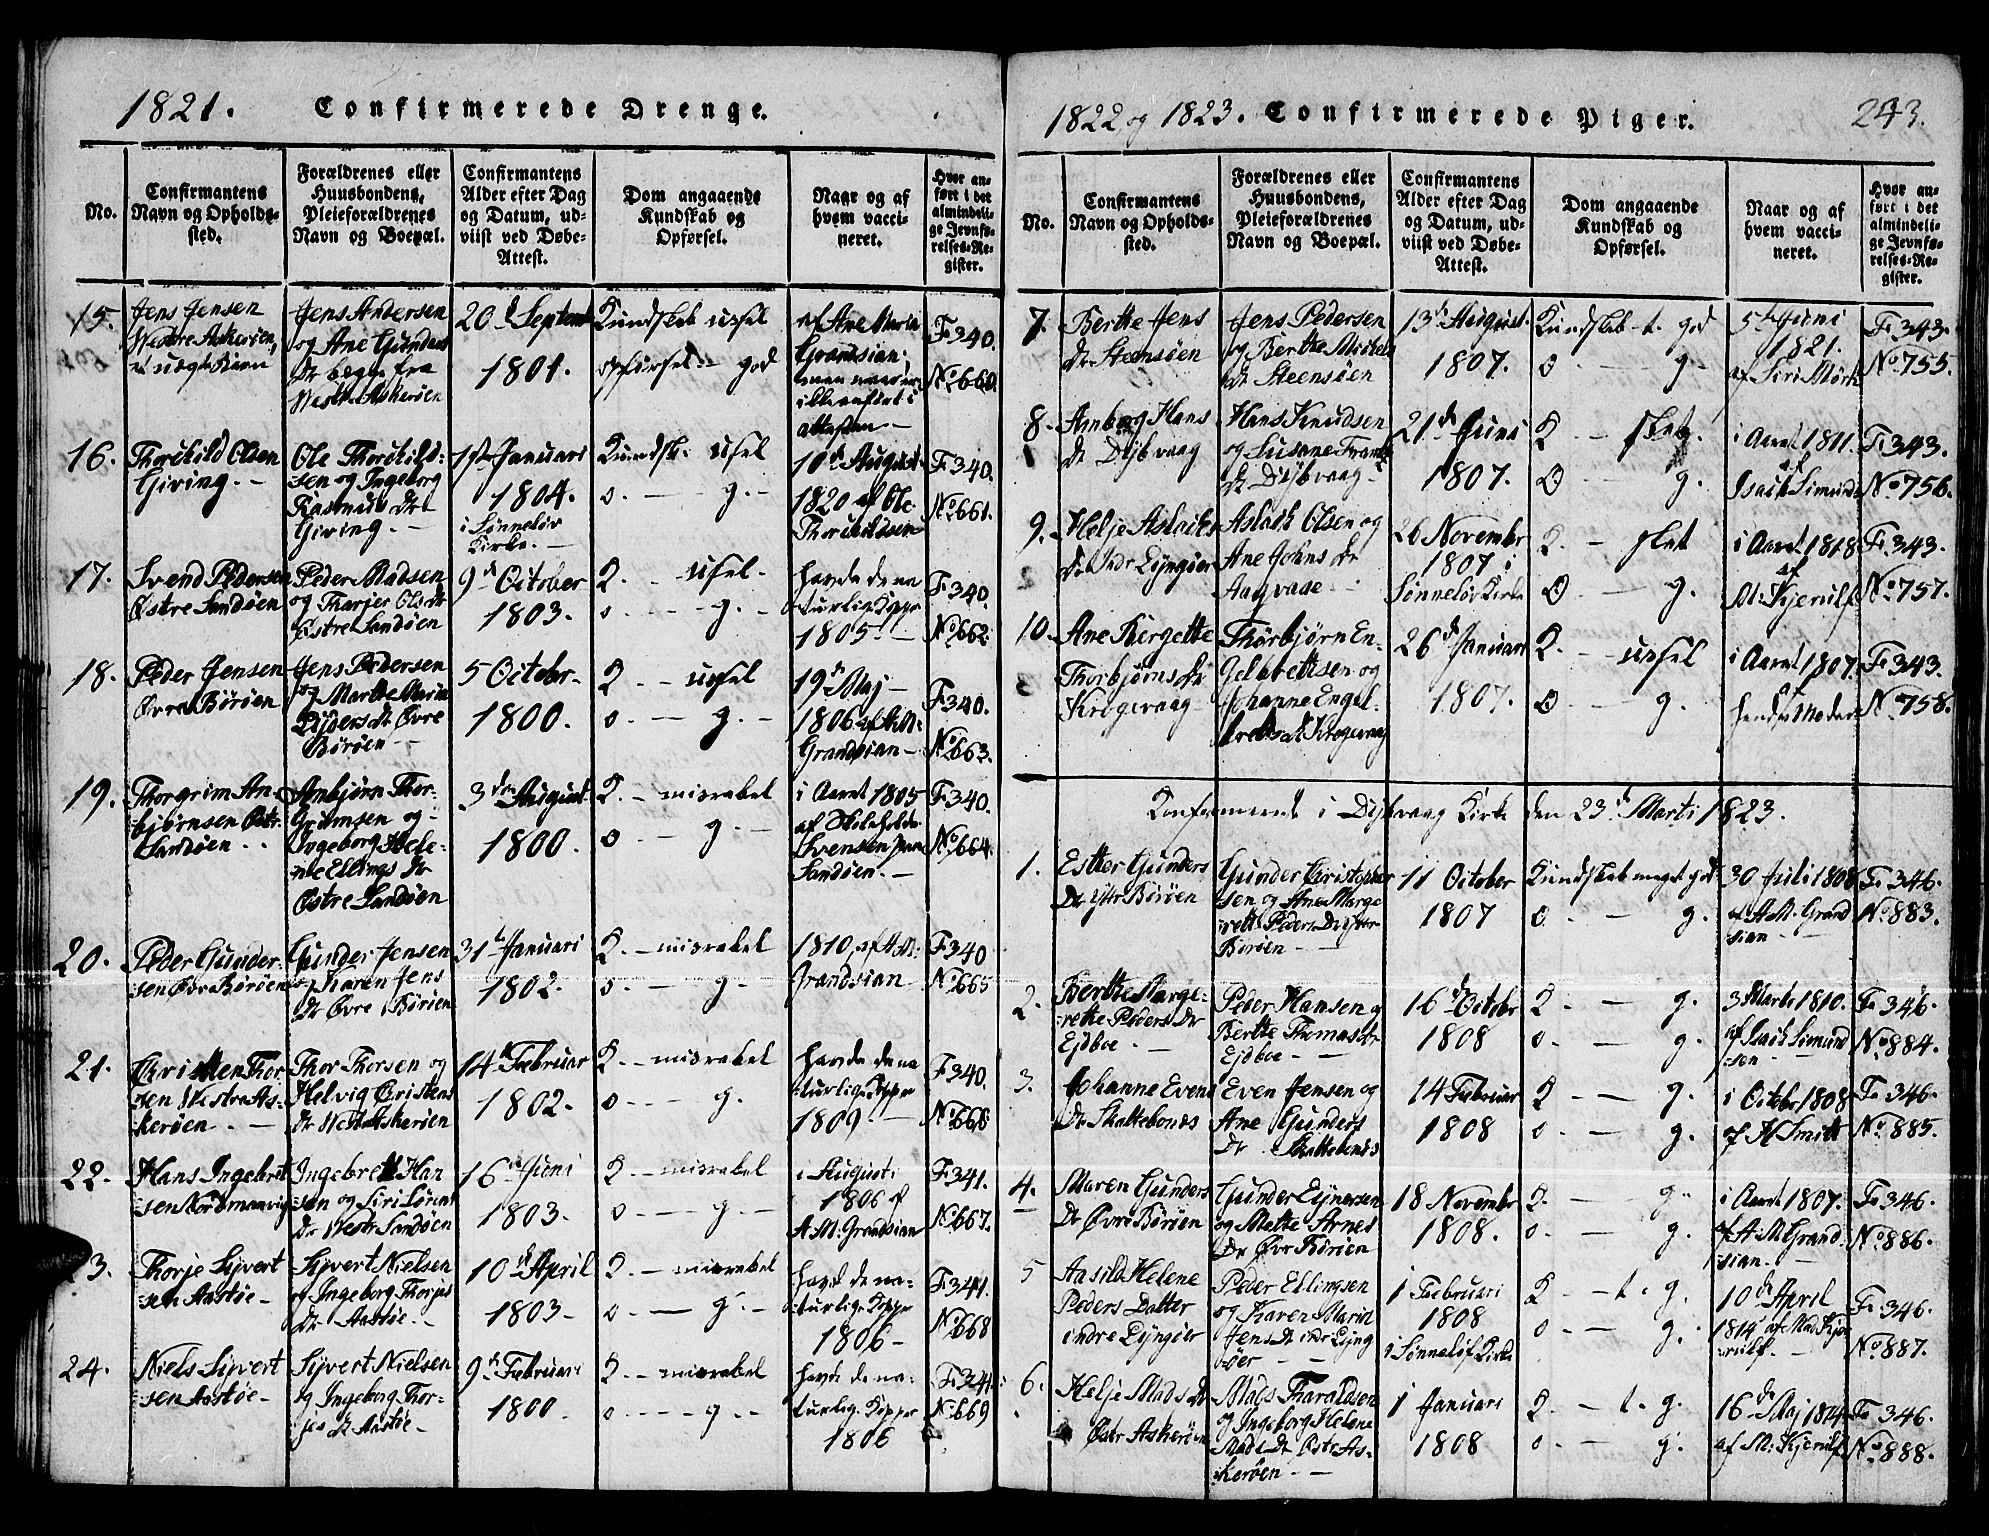 1821. Confirmerede Drenge.
No.
Confirmantens
Navn og Opholds-
sted.
Forældrenes eller
Huusbondens,
Pleieforældrenes
Navn og Boepæl.
Confirmantens
Alder efter Dag
og Datum, ud-
viist ved Døbe-
Attest.
Dom angaaende
Kundskab og
Opførsel.
Naar og af
hvem vacci-
neret.
Hvor an-
ført i det
almindeli-
ge Jevnfø-
relses-Re-
gister.
15.
Jens Jensen
Westre Askerøen,
Jens Andersen
og Ane Gunders
Dr begge fra
Westre Askerøen
20d Septemb
1801.
Kundskab ussel
opførsel - god
af Ane Maria
Grandsian,
ikke anført i
attesten -
F 340.
No 660.
16.
Thorchild Olsen
Giving. -
Ole Thorchild-
sen og Ingeborg
Rasmus Dr
Giving. -
1ste Januari
1804.
i Sønneløv
Kirke. -
Kundsk. usel
o. - g. -
10de August
1820 af Ole
Thorchildsen
F 340.
No 661.
17.
Svend Pedersen
Østre Sandøen
Peder Madsen
og Tharjer Ols dr
Østre Sandøen
9d October
1803.
K. - usel.
o. - g. -
havde de na
turlige Kopper
1805 -
F 340.
No 662.
18.
Peder Jensen
Øvre Børøen
Jens Pedersen
og Marthe Maria
Øvre
Børøen -
5 Octobr -
1800.
K. - ussel
o. - g. -
19d Maj -
1806 af A M:
Grandsian -
F 340.
No 663.
19.
Thorgrim An-
bjørnsen Østr
Sandøen -
Anbjørn Thor-
Grimsen og -
Ingeborg Hele-
ne Ellings Dr
Østre Sandøen
3die August
1800.
K. - misrabel
o. - g. -
i Aaret 1805
af Skoleholder
Svensen paa
Sandøen. -
F 340.
No 664.
20.
Peder Gunder-
sen Øvr Børøen
Gunder Jensen
og Karen Jens
Dr Øvre Børøen
31te Januari
1802.
K. - misrabel
o. - g. -
1810, af A M:
Grandsian
F 340
No 665
21.
Christen Thor
sen Westre As-
kerøen. -
Thor Thorsen og
Helvig Cristens
Dr West Askerøen
14d Februar
1802.
K. - misrabel
o - g.
havde de na
turlige Kopper
1809. -
F 340.
No 666
22.
Hans Ingebret
sen Nordmanvig
Ingebrett Han
sen og Siri Sørens
Dr Westr Sandøen
16de Juni
1803.
K. - misrabel
o - g. -
i August
1806 af
A M: Grandsian
F 341.
No 667.
23.
Thorje Sijvert
sen Aastøe -
Sijvert Nielsen
og Ingeborg Thorjes
Dr Aastøe. -
10d April
1803 -
K. - misrabel
o - g. -
havde de na-
turlige Kopper
1806 -
F 341.
No 668
24.
Niels Sijvert
sen Aastøe -
Sijvert Nielsen
og Ingeborg Thor-
jes Dr Aastøe -
9de Februari
1800
K. - misrabel
o - g. -
havde de na-
turlige Kopper
1806
F 341.
No 669
1822 og 1823. Confirmerede Piger. 243.
No.
Confirmantens
Navn og Opholds-
sted.
Forældrenes eller
Huusbondens,
Pleieforældrenes
Navn og Boepæl.
Confirmantens
Alder efter Dag
og Datum, ud-
viist ved Døbe-
Attest.
Dom angaaende
Kundskab og
Opførsel.
Naar og af
hvem vacci-
neret.
Hvor an-
ført i det
almindeli-
ge Jevnfø-
relses-Re-
gister.
7.
Berthe Jens
dr Steensøen
Jens Pedersen
og Berthe Mickels
dr Steensøen
13d August.
1807.
Kundskab - t. god
O. - g.
5te Juni
1821.
af Siri Mørk
F. 343.
No 755.
8.
Amborg Hans
dr Dijbvaag
Hans Knudsen
og Susane Frants
dr Dijbvaag -
21de Juni
1807.
K. - slet.
O. - g.
i Aaret 1811.
af
Isack Simunds
F. 343.
No 756.
9.
Helje Aslacks
Dr Indr Lyngøer
Aslack Olsen og
Ane Johns Dr
Aagvaae -
26 Novembr
1807 i
Sønneløv Kirke
K. - slet
O. - g.
i Aaret 1818
af
M: Kjerulf
F. 343.
No 757.
10.
Ane Birgette
Thorbjørns Dr
Krogevaag
Thorbjørn En-
gelbrettsen og
Johanne Engel-
bretts dr Krogevaag
26d Januari
1807.
K. - ussel
O. - g.
i Aaret 1807.
af
hendes Moder
F. 343.
No 758.
Konfirmerede i Dijbvaag Kirke den 23de Marti 1823.
1.
Esther Gunders
Dr Ytr Børøen
Gunder Christopher
sen og Ane Marge
rette Peders Dr Ytr
Børøen -
11 October
1807
Kundskab meget god
o. - g.
30 Juli 1808
af A M. Grand
sian -
F. 346.
No 883.
2.
Berthe Marge-
rethe Peders Dr
Ejdboe -
Peder Hansen og
Berthe Thomas dr
Ejdboe -
16d Octobr
1808
K. - g.
o. - g.
3 Marti 1810.
af Isack Simund
sen -
F. 346.
No 884.
3.
Johanne Evens
Dr Skattebonds
Even Jensen og
Ane Gunders
Dr Skattebonds
14 Februar
1808
K. - g.
o. - g.
i Octobr 1808
af H Smitt
F. 346.
No 885.
4.
Maren Gunders
Dr Øvre Børøen
Gunder Eijnersen
og Malte Arnes
Dr Øvr Børøen
18 Novembr
1808.
K. - g.
o. - g.
i Aaret 1807.
af A M. Grand
sian. -
F. 346.
No 886.
5
Aasild Helene
Peders Datter
indre Lyngøer
Peder Ellingsen
og Karen Maria
Jens Dr indr Lijng
øer -
1 Februari
1808
i Sønneløf Kirke
K. - t. g.
o. - g.
10de April
1814 af Mad Kjer
rulf. -
F. 346.
No 887.
6.
Helje Mads Dr
Østr Askerøen
Mads Tharaldsen
og Ingeborg Helene
Mads Dr Østr As-
kerøen -
1 Januari
1808
K. - t. g.
o. - g.
16de Maj 1814
af M: Kjerulf
F. 346.
No 888.